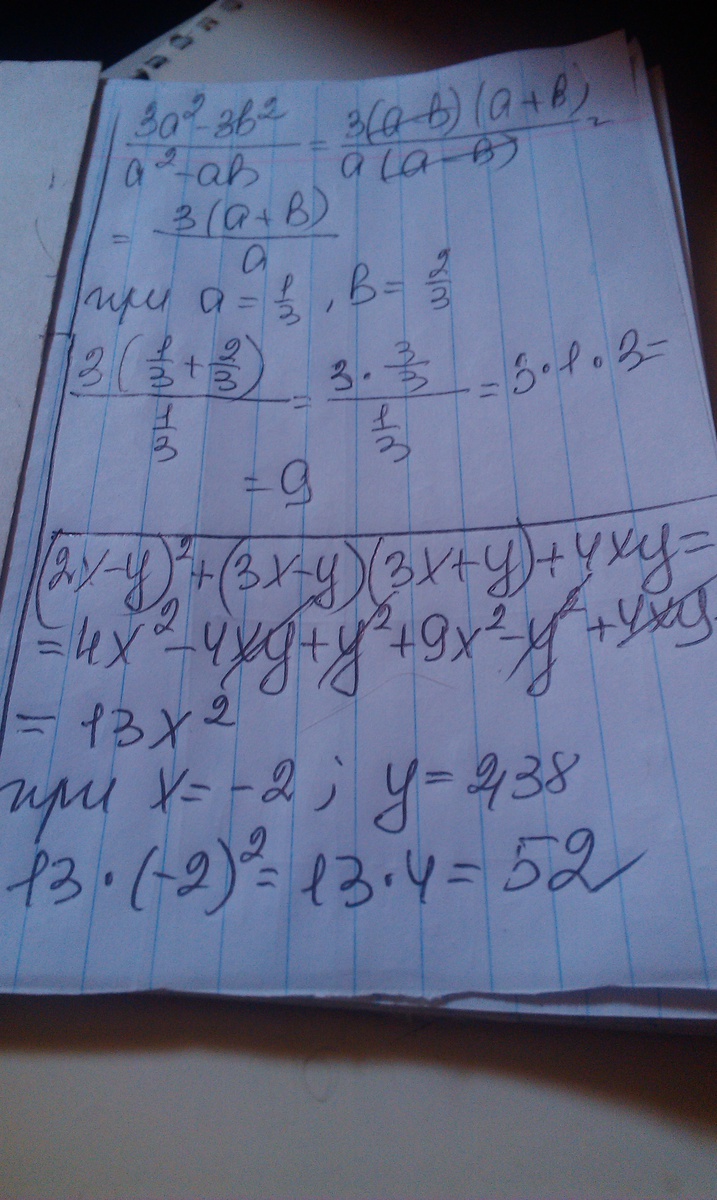 (3a²-3b²)/(a²-ab) = (3(a-b)(a+b))/(a(a-b)) =
= (3(a+b))/a
при a = 1/3, b = 2/3
(3(1/3 + 2/3))/(1/3) = (3 · 3/3)/(1/3) = 3·1·3 =
= 9
(2x-y)² + (3x-y)(3x+y) + 4xy =
= 4x² - 4xy + y² + 9x² - y² + 4xy
= 13x²
при x = -2; y = 2,38
13·(-2)² = 13·4 = 52